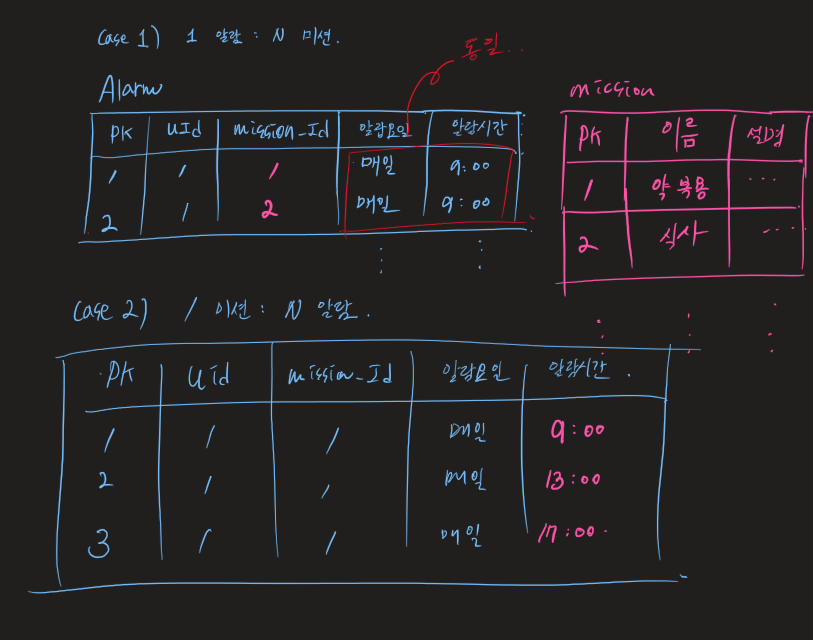 Case 1) 1 알람 : N 미션.
동일..
Alarm
PK UId mission_Id 알람요일 알람시간
1 1 1 매일 9:00
2 1 2 매일 9:00
mission
PK 이름 설명
1 약 복용 ...
2 식사 ....
Case 2) 1 미션 : N 알람.
PK Uid mission_Id 알람요일 알람시간.
1 1 1 매일 9:00
2 1 1 매일 13:00
3 1 1 매일 17:00